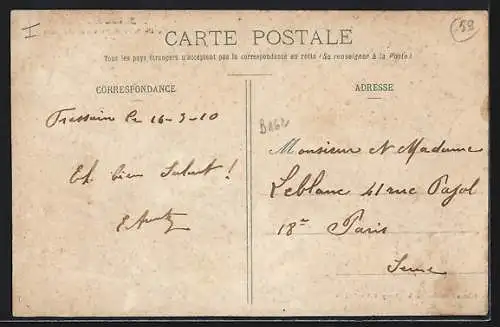 I
59
CARTE POSTALE
Tous les pays étrangers n'acceptent pas la correspondance au recto (Se renseigner à la Poste)
CORRESPONDANCE
ADRESSE
le 16-3-10
Eh bien Salut !
Monsieur et Madame
Leblanc 41 rue Pajol
18me Paris
Seine